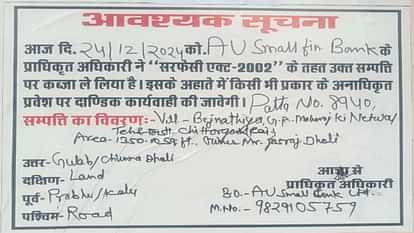 आवश्यक सूचना
आज दि. 24/12/2024 को. AU Small fin Bank के
प्राधिकृत अधिकारी ने “सरफेसी एक्ट-2002” के तहत उक्त सम्पत्ति
पर कब्जा ले लिया है। इसके अहाते में किसी भी प्रकार के अनाधिकृत
प्रवेश पर दाण्डिक कार्यवाही की जावेगी। Patta No. 8940,
सम्पत्ति का विवरण:- Vill - Bejnathiya, G.P. Mohraj ki Netwal
Area - 1350 Sq.ft. Mr. Jasraj Dholi
उत्तर- Gulab/Chunna Dholi
दक्षिण- Land
पूर्व- Prabhu/Kalu
पश्चिम- Road
आज्ञा से
प्राधिकृत अधिकारी
AU Small Bank Ltd.
M.No.- 9829105759